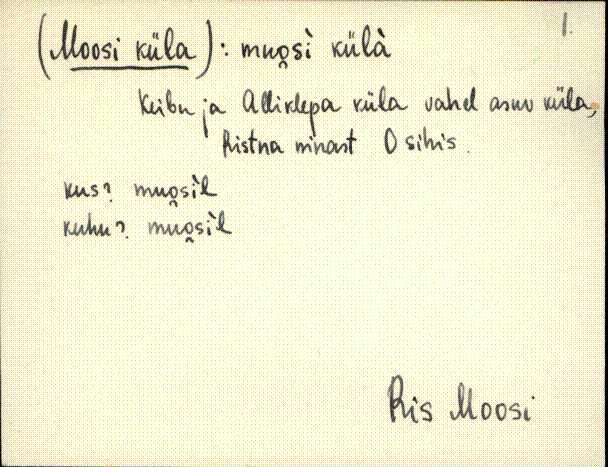 1.
(Moosi küla): muo̯si külà
Keibu ja Alliklepa küla vahel asuv küla,
Ristna ninast O sihis.
kus? muo̯sìl
kuhu? muo̯sìl
Ris Moosi